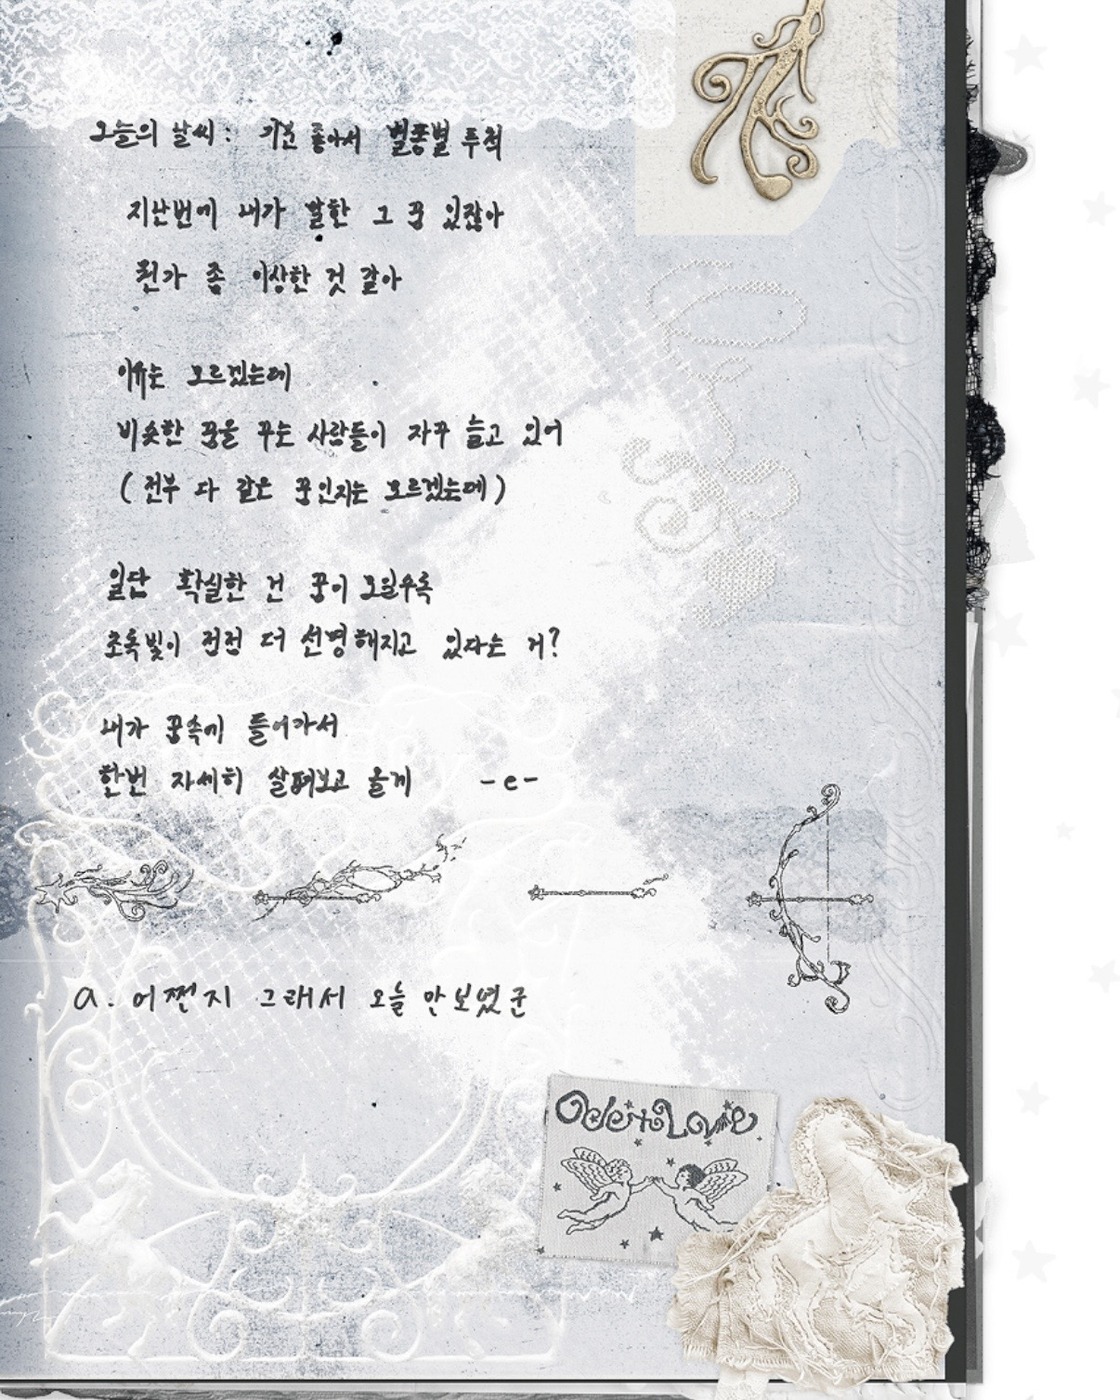 오늘의 날씨 : 기분 좋아서 별똥별 투척
지난번에 내가 말한 그 꿈 있잖아
뭔가 좀 이상한 것 같아
이유는 모르겠는데
비슷한 꿈을 꾸는 사람들이 자꾸 늘고 있어
( 전부 다 같은 꿈인지는 모르겠는데 )
일단 확실한 건 꿈이 모일수록
초록빛이 점점 더 선명해지고 있다는 거?
내가 꿈속에 들어가서
한번 자세히 살펴보고 올게 -e-
a. 어쩐지 그래서 오늘 안보였군
Ode to Love